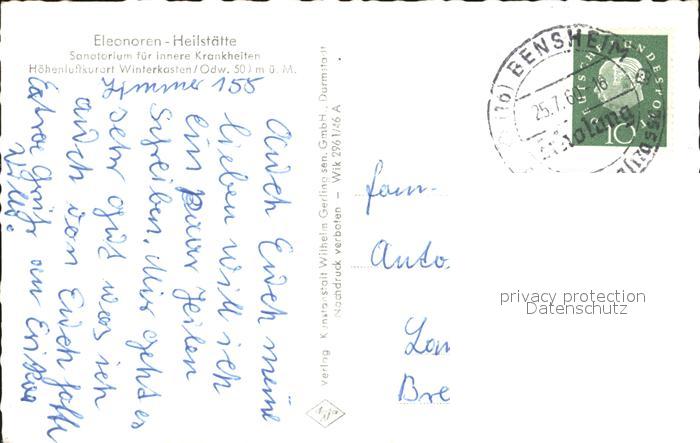 Eleonoren - Heilstätte
Sanatorium für innere Krankheiten
Höhenluftkurort Winterkasten/Odw. 501 m ü. M.
Zimmer 155
Auch Euch meine
lieben will ich
ein paar Zeilen
schreiben. Mir geht es
sehr gut was ich
auch von Euch hoffe
Extra Gruß an Erika
Verlag Kunstanstalt Wilhelm Gerling sen. GmbH., Darmstadt
Nachdruck verboten — Wik 2961/46 A
(16) BENSHEIM
25.7.60
Erholung
DEUTSCHE BUNDESPOST
10
Fam.
Auto.
Lan
Bre
privacy protection
Datenschutz